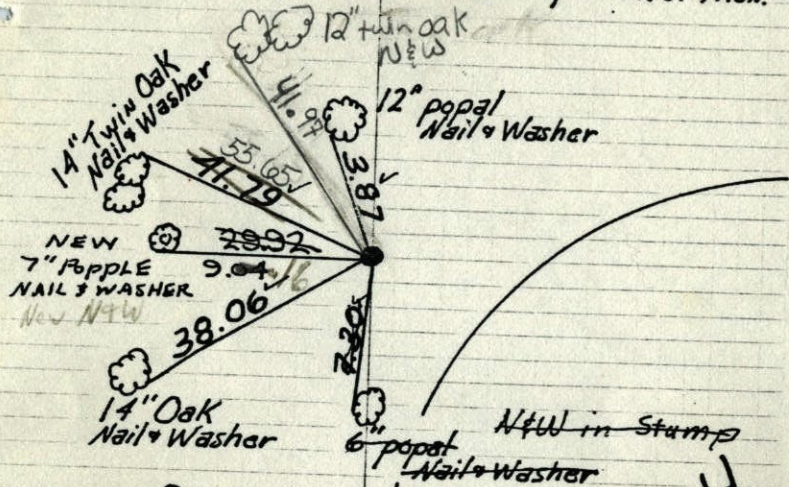 12" twin oak
N&W
14" Twin Oak
Nail & Washer
41.97
12" popal
Nail & Washer
55.65✓
41.79
3.87✓
NEW
7" POPPLE
NAIL & WASHER
New N&W
29.92
9.04 .16
38.06✓
7.30
14" Oak
Nail & Washer
6" popal
Nail & Washer
N&W in Stump